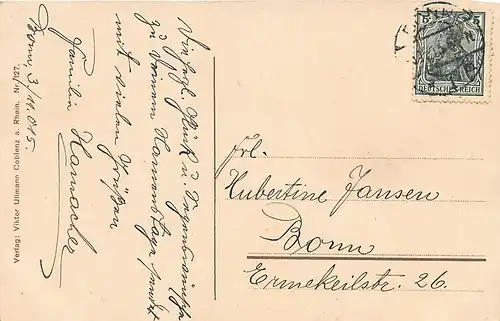 Die herzl. Glück u. Segenswünsche
zu Deinem Namenstage sendet
mit vielen Grüßen
Familie Hamacher
Bonn, 3/11.015.
Frl.
Hubertine Jansen
Bonn
Ermekeilstr. 26.
5 5
DEUTSCHES REICH
Verlag: Viktor Ullmann Coblenz a. Rhein. Nr. 127.